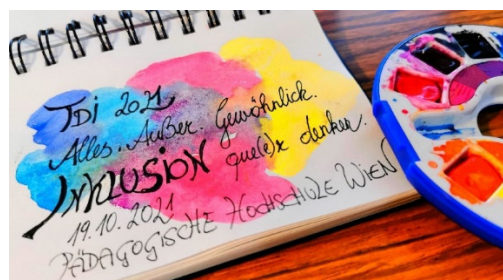 TDI 2021
Alles. Außer. Gewöhnlich.
INKLUSION que(e)r denken.
19.10.2021
PÄDAGOGISCHE HOCHSCHULE WIEN